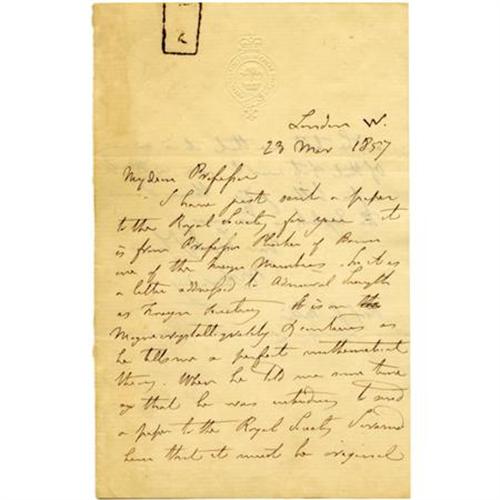 London W.
23 Mar 1857
My dear Professor
I have just sent a paper
to the Royal Society for you it
is from Professor Plucker of Bonn
one of the foreign Members. It is
a letter addressed to Admiral Smyth
as Foreign Secretary It is on the
Magnecrystallic quality & contains as
he tells me a perfect mathematical
theory. When he told me some time
ago that he was intending to send
a paper to the Royal Society I warned
him that it must be original